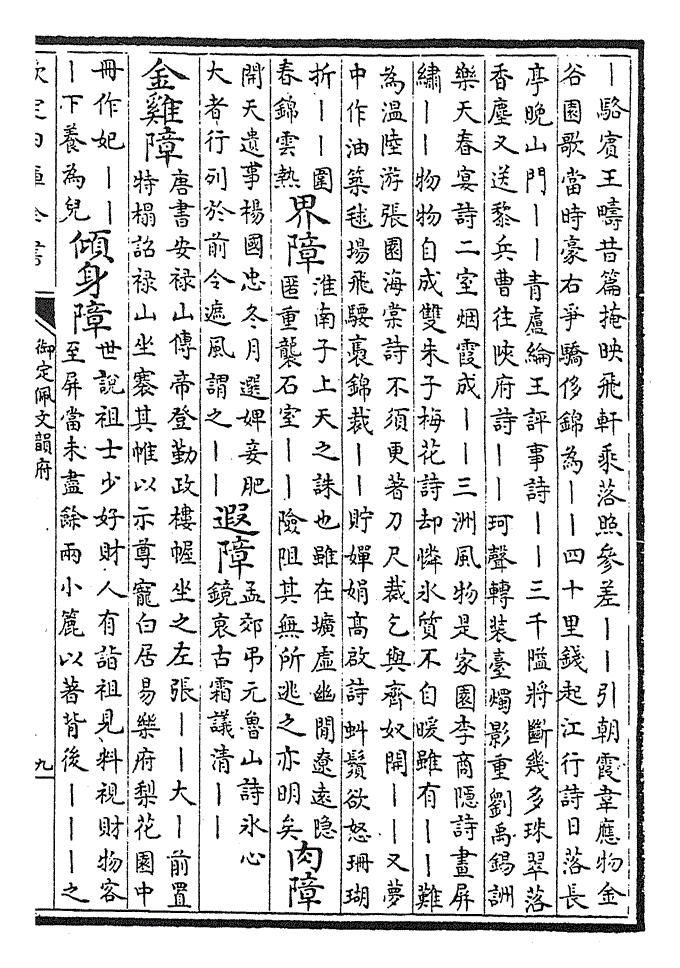 丨駱賓王疇昔篇掩映飛軒乘落照參差丨丨引朝霞韋應物金
谷園歌當時豪右爭驕侈錦為丨丨四十里錢起江行詩日落長
亭晚山門丨丨青盧綸王評事詩丨丨三千隘將斷幾多珠翠落
香塵又送黎兵曹往陝府詩丨丨珂聲轉裝臺燭影重劉禹錫詶
樂天春宴詩二室烟霞成丨丨三洲風物是家園李商隱詩畫屏
繡丨丨物物自成雙朱子梅花詩却憐氷質不自暖雖有丨丨難
為溫陸游張園海棠詩不須更著刀尺裁乞與齊奴開丨丨又夢
中作油築毬場飛騕褭錦裁丨丨貯嬋娟高啟詩蚪鬚欲怒珊瑚
折丨丨圍
春錦雲熱
界障
淮南子上天之誅也雖在壙虛幽閒遼遠隱
匿重襲石室丨丨險阻其無所逃之亦明矣
肉障
開天遺事楊國忠冬月選婢妾肥
大者行列於前令遮風謂之丨丨
遐障
孟郊弔元魯山詩氷心
鏡哀古霜議清丨丨
金雞障
唐書安禄山傳帝登勤政樓幄坐之左張丨丨大丨前置
特榻詔禄山坐褰其帷以示尊寵白居易樂府梨花園中
冊作妃丨丨
丨下養為兒
傾身障
世說祖士少好財人有詣祖見料視財物客
至屏當未盡餘兩小簏以著背後丨丨丨之
欽定四庫全書
御定佩文韻府
九